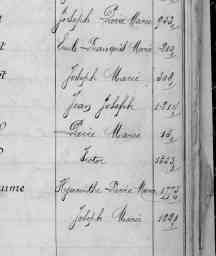 Joseph Pierre Marie 953
Emile François Marie 210
Joseph Marie
Jean Joseph 1215
Pierre Marie 16
Victor 1053
aume Hyacinthe Pierre Marie 1775
Joseph Marie 1091